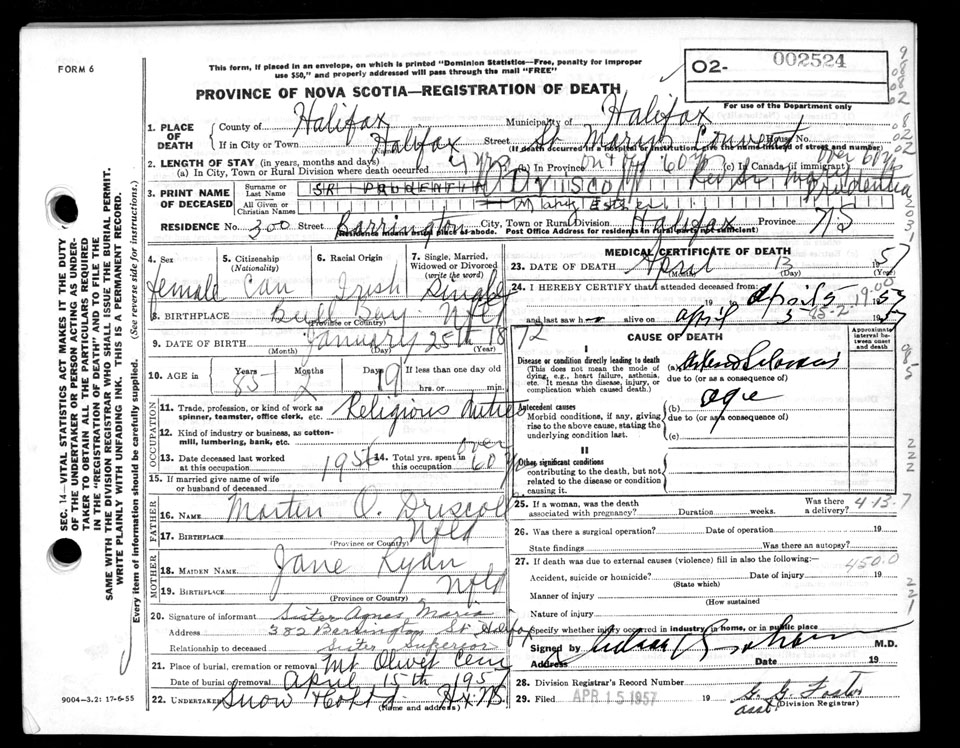 FORM 6
This form, if placed in an envelope, on which is printed "Dominion Statistics—Free, penalty for improper
use $50," and properly addressed will pass through the mail "FREE"
02- 002524
For use of the Department only
PROVINCE OF NOVA SCOTIA—REGISTRATION OF DEATH
SEC. 14—VITAL STATISTICS ACT MAKES IT THE DUTY
OF THE UNDERTAKER OR PERSON ACTING AS UNDER-
TAKER TO OBTAIN ALL THE PARTICULARS REQUIRED
IN THE "REGISTRATION OF DEATH" AND TO FILE THE
SAME WITH THE DIVISION REGISTRAR WHO SHALL ISSUE THE BURIAL PERMIT.
WRITE PLAINLY WITH UNFADING INK. THIS IS A PERMANENT RECORD.
Every item of information should be carefully supplied. (See reverse side for instructions.)
1. PLACE OF DEATH
County of Halifax Municipality of Halifax
If in City or Town Halifax Street St. Mary's Convent House No.
(If death occurred in a hospital or institution, give the name instead of street and number)
2. LENGTH OF STAY (in years, months and days)
(a) In City, Town or Rural Division where death occurred 4 yrs (b) In Province 60 yrs (c) In Canada (if immigrant) over 60 yrs
3. PRINT NAME OF DECEASED
Surname or Last Name SR PRUDENTIA O'DRISCOLL Rev. Sr. Mary Prudentia
All Given or Christian Names Mary Esther
RESIDENCE No. 300 Street Barrington City, Town or Rural Division Halifax Province NS
(Residence means usual place of abode. Post Office Address for residents in rural parts not sufficient)
4. Sex female
5. Citizenship (Nationality) Can
6. Racial Origin Irish
7. Single, Married, Widowed or Divorced (write the word) Single
8. BIRTHPLACE Bull Bay Nfld
(Province or Country)
9. DATE OF BIRTH January 25th 1872
(Month) (Day) (Year)
10. AGE in Years 85 Months 2 Days 19 If less than one day old
hrs. or min.
OCCUPATION
11. Trade, profession, or kind of work as
spinner, teamster, office clerk, etc. Religious duties
12. Kind of industry or business, as cotton-
mill, lumbering, bank, etc.
13. Date deceased last worked
at this occupation 1956
14. Total yrs. spent in
this occupation over 60 yrs
15. If married give name of wife
or husband of deceased
FATHER
16. Name Martin O. Driscoll
17. Birthplace Nfld
(Province or Country)
MOTHER
18. Maiden Name Jane Ryan
19. Birthplace Nfld
(Province or Country)
20. Signature of informant Sister Agnes Maria
Address 382 Barrington St Halifax
Relationship to deceased Sister Superior
21. Place of burial, cremation or removal Mt Olivet Cem
Date of burial or removal April 15th 1957
22. Undertaker Snow & Co Ltd Hx. N.S.
(Name and address)
9004-3.2: 17-6-55
MEDICAL CERTIFICATE OF DEATH
23. DATE OF DEATH April 13 1957
(Month) (Day) (Year)
24. I HEREBY CERTIFY that I attended deceased from:
19 to April 5 1957
and last saw h er alive on April 5 1957
CAUSE OF DEATH
Approximate interval between onset and death
I
Disease or condition directly leading to death
(This does not mean the mode of
dying, e.g., heart failure, asthenia,
etc. It means the disease, injury, or
complication which caused death.)
(a) Arteriosclerosis
due to (or as a consequence of)
Antecedent causes
Morbid conditions, if any, giving
rise to the above cause, stating the
underlying condition last.
(b) age
due to (or as a consequence of)
(c)
II
Other significant conditions
contributing to the death, but not
related to the disease or condition
causing it.
25. If a woman, was the death
associated with pregnancy? Duration weeks. Was there a delivery?
4-13-7
26. Was there a surgical operation? Date of operation 19
State findings Was there an autopsy?
27. If death was due to external causes (violence) fill in also the following:—
450.0
Accident, suicide or homicide? Date of injury 19
(State which)
Manner of injury
(How sustained)
Nature of injury
Specify whether injury occurred in industry, in home, or in public place
Signed by M.D.
Address Date 19
28. Division Registrar's Record Number
29. Filed APR 15 1957 19 G. G. Foster
asst. (Division Registrar)